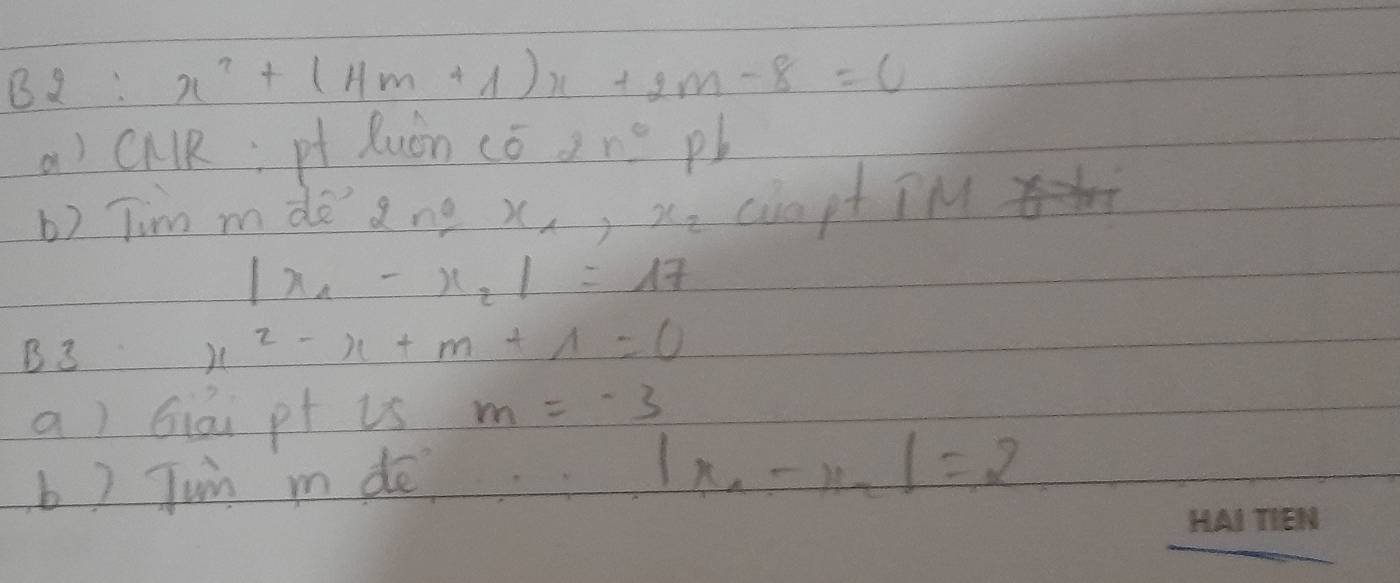 B2 : x² + (4m + 1)x + 2m - 8 = 0
a) CMR : pt luôn có 2 nº pb
b) Tìm m để 2 nº x₁, x₂ của pt TM
|x₁ - x₂| = 17
B3 x² - x + m + 1 = 0
a) Giải pt vs m = -3
b) Tìm m để ... |x₁ - x₂| = 2
HAI TIEN